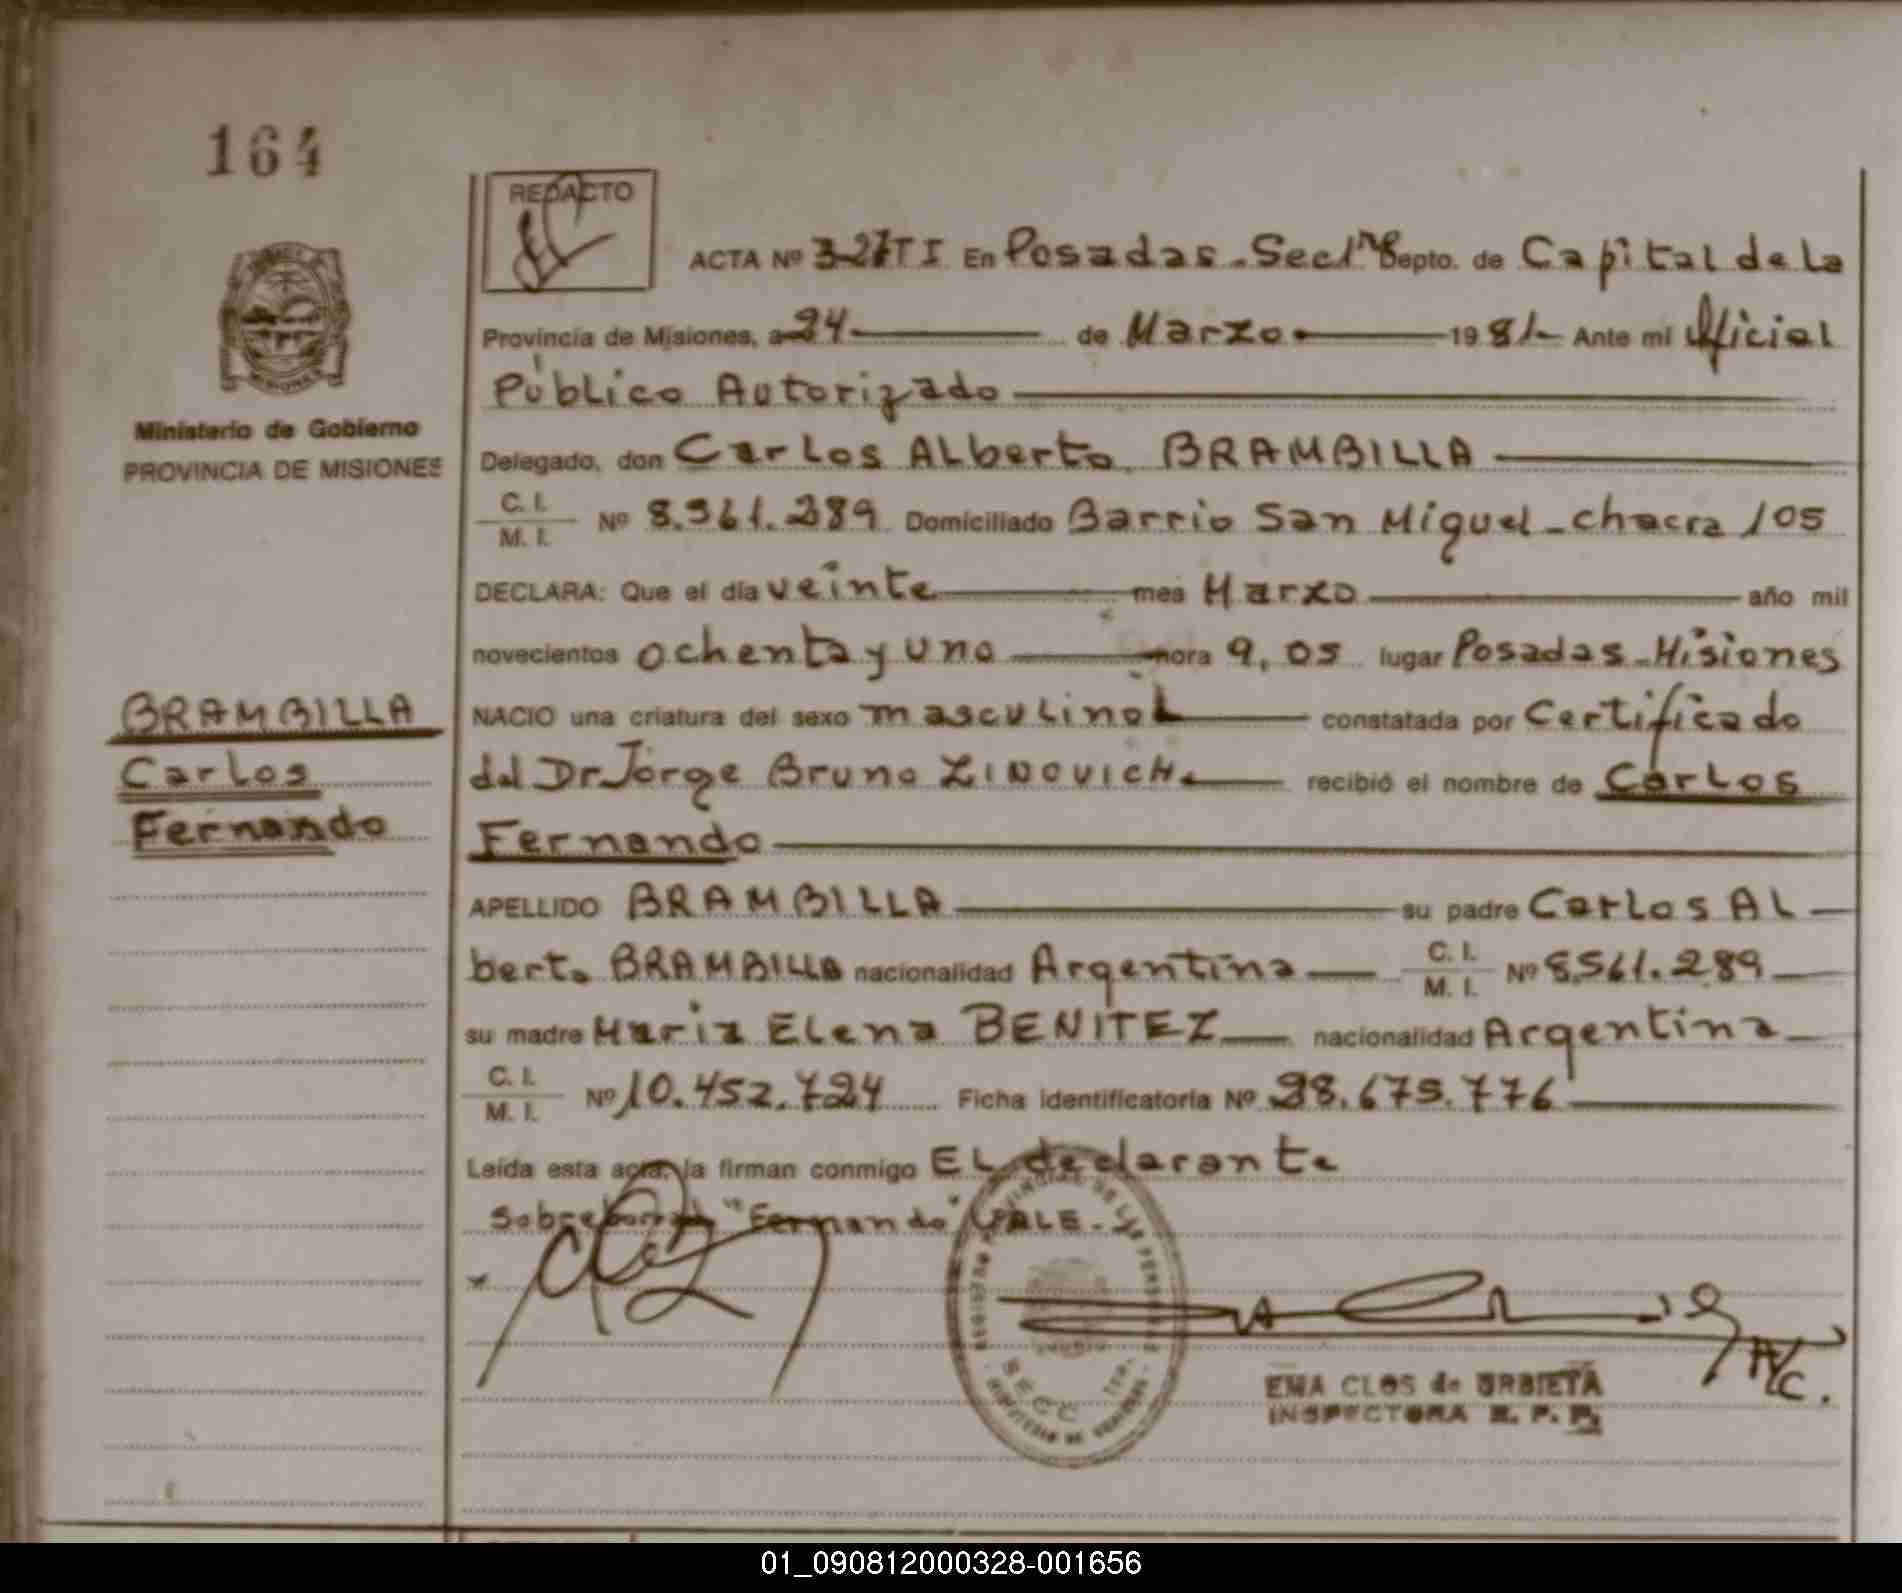 164
REDACTO
ACTA Nº 327 T I En Posadas - Secc. 1ª Depto. de Capital de la
Provincia de Misiones, a 24 de Marzo 1981 Ante mi Oficial
Público Autorizado
Ministerio de Gobierno
PROVINCIA DE MISIONES
Delegado, don Carlos ALberto BRAMBILLA
C. I.
M. I. Nº 8.561.289 Domiciliado Barrio San Miguel - chacra 105
DECLARA: Que el día veinte mes Marzo año mil
novecientos ochenta y uno hora 9,05 lugar Posadas - Misiones
BRAMBILLA
Carlos
Fernando
NACIO una criatura del sexo masculino constatada por Certificado
del Dr Jorge Bruno ZINOVICH recibió el nombre de Carlos
Fernando
APELLIDO BRAMBILLA su padre Carlos AL
berto BRAMBILLA nacionalidad Argentina C. I.
M. I. Nº 8.561.289
su madre Maria Elena BENITEZ nacionalidad Argentina
C. I.
M. I. Nº 10.452.724 Ficha identificatoria Nº 28.675.776
Leída esta acta, la firman conmigo EL declarante
Sobreborrado "Fernando" VALE.-
REGISTRO PROVINCIAL DE LAS PERSONAS
SECC. 1ra.
MINISTERIO DE GOBIERNO
A/C.
EMA CLOS de URBIETA
INSPECTORA R. P. P.
01_090812000328-001656